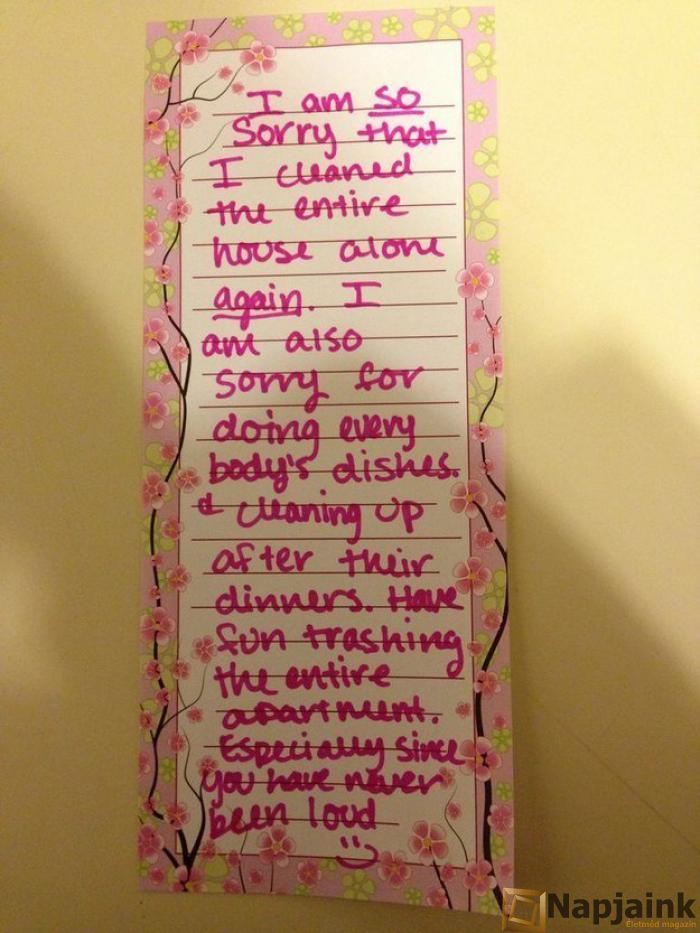 I am so
Sorry that
I cleaned
the entire
house alone
again. I
am also
sorry for
doing every
body's dishes.
& cleaning up
after their
dinners. Have
fun trashing
the entire
apartment.
Especially since
you have never
been loud
Napjaink
Életmód magazin